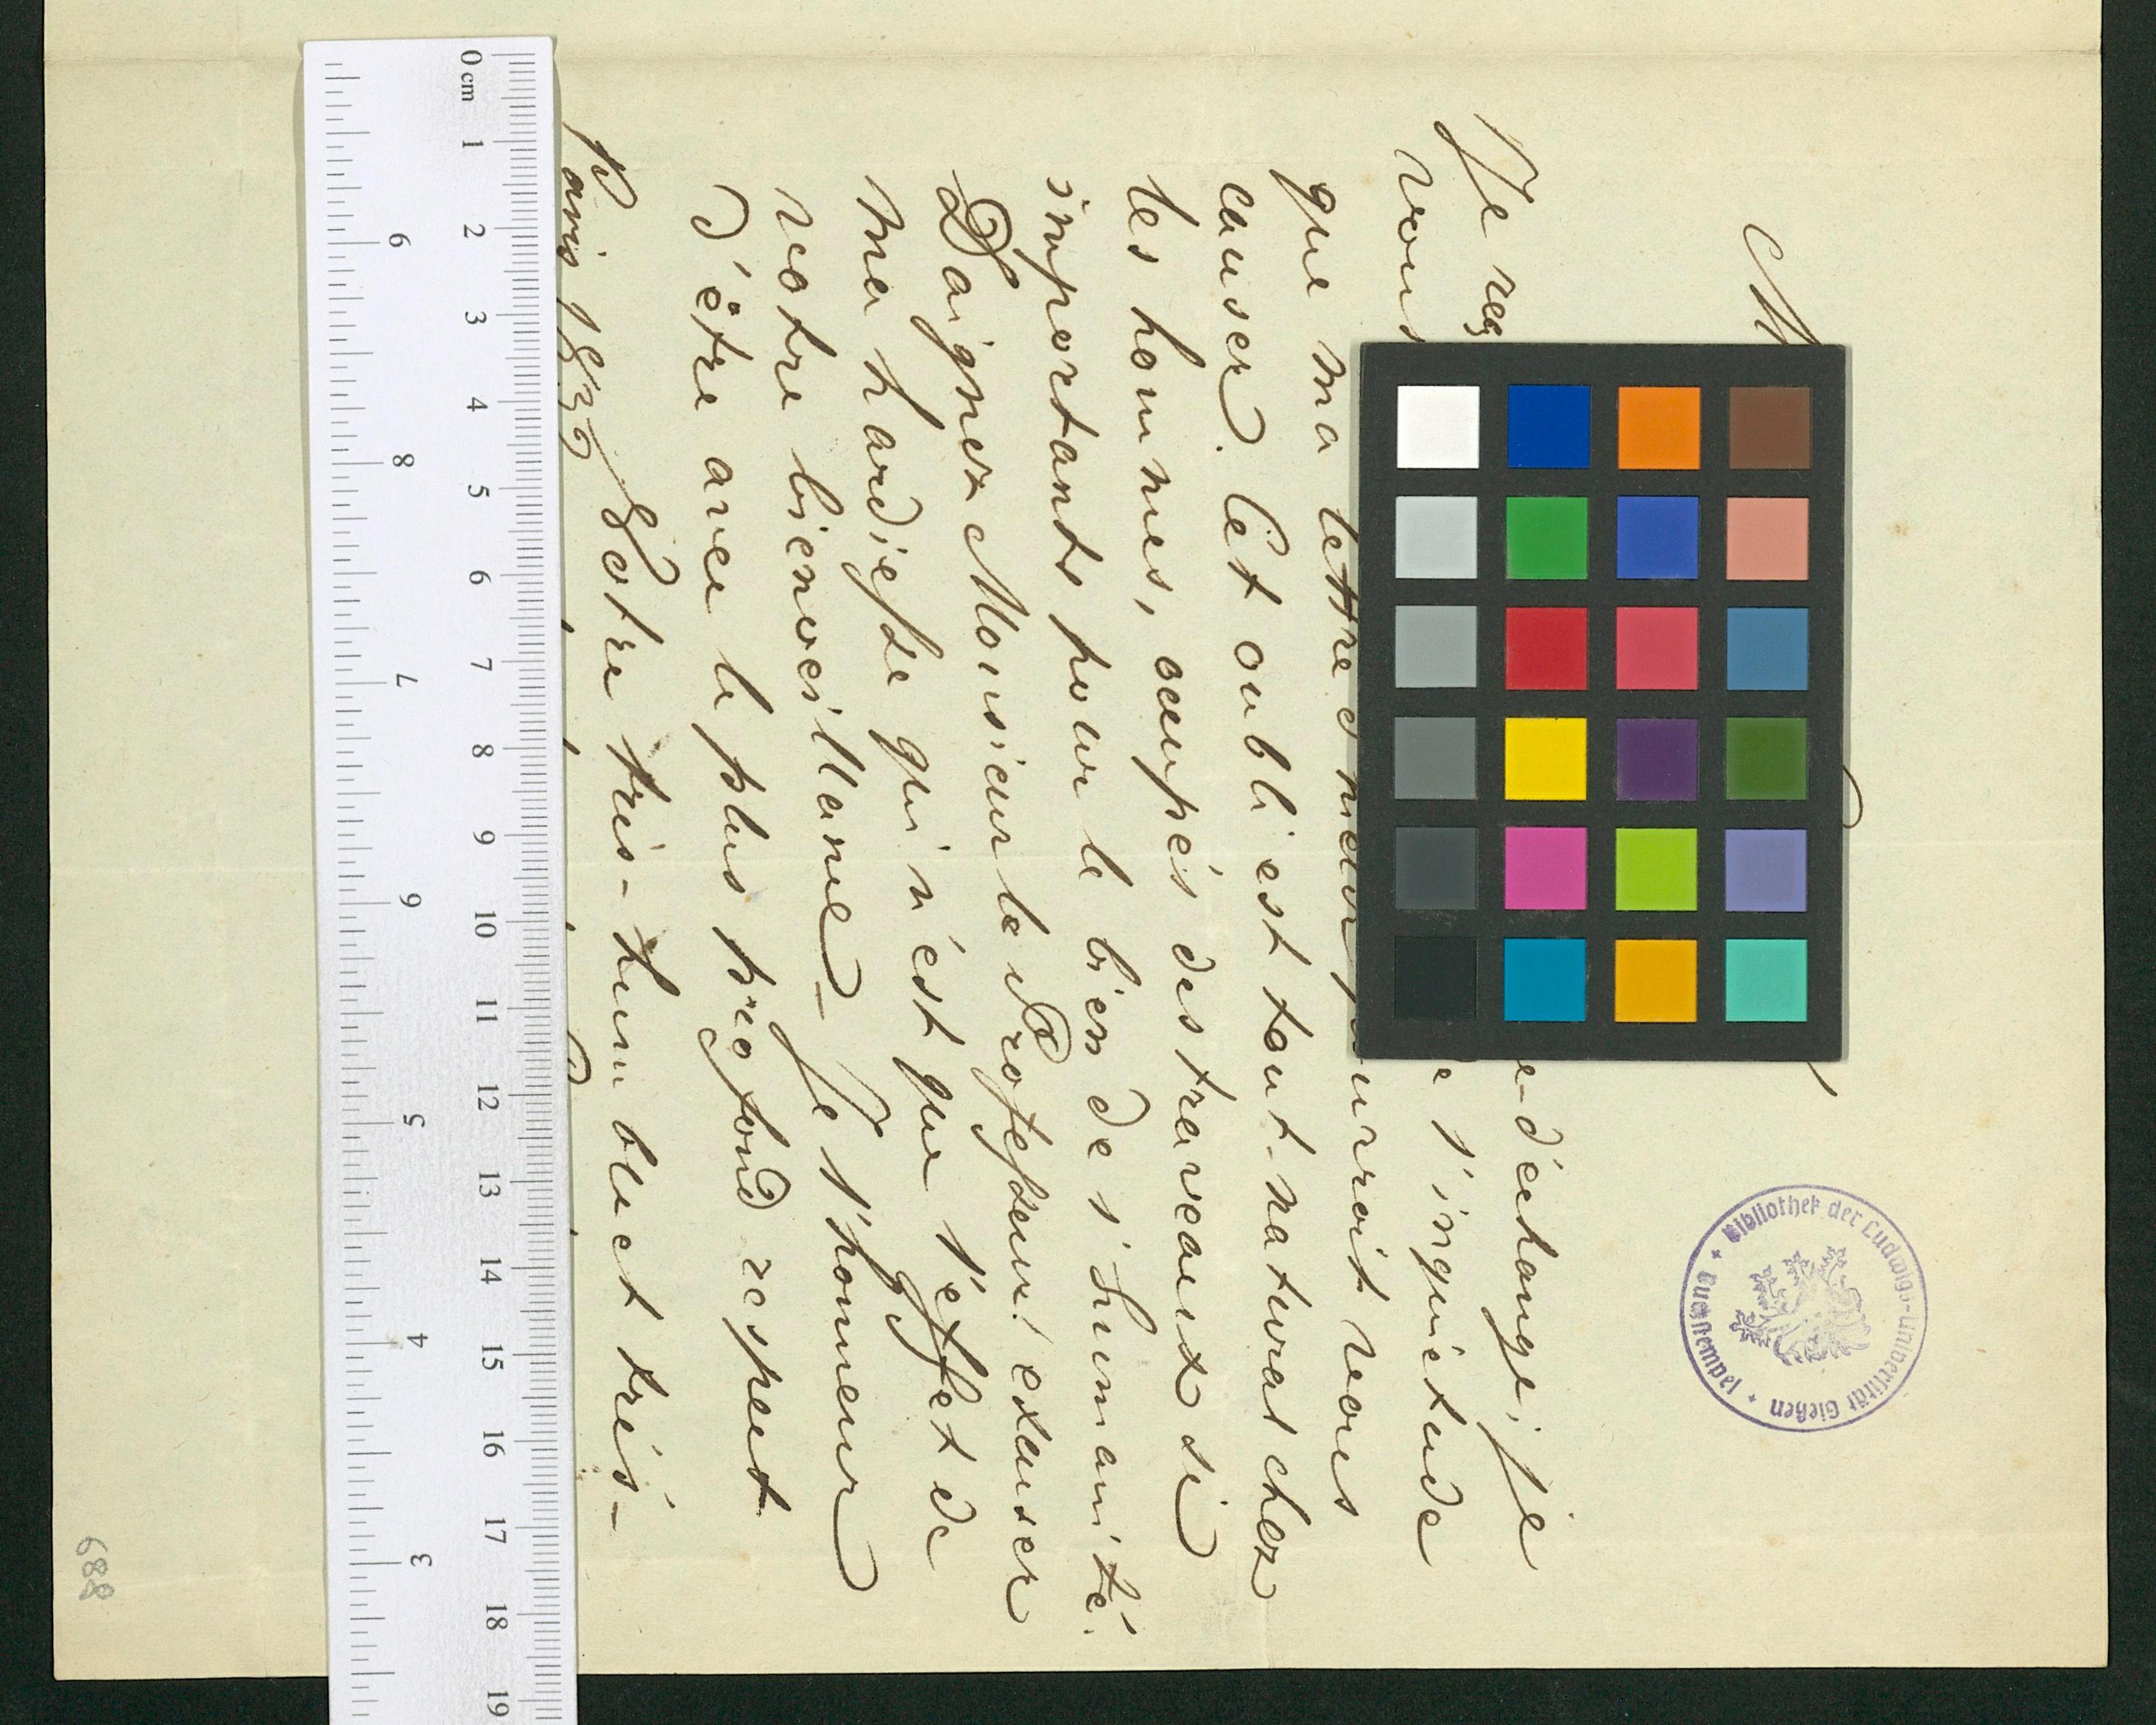 M
Je reg e-d'echange; je
vous e l'inquietude
que ma lettre vous
causer. Cet oubli est tout-naturel chez
les hommes, occupés des travaux si
importants pour le bien de l'humanité.
Daignez Monsieur le Professeur! excuser
ma hardiesse qui n'est que l'effet de
votre bienveillance_ Je l'honneur
d'être avec le plus profond respect
Votre très-humble et très-
Paris 1839
Bibliothek der Ludwigs-Universität Gießen
Duastempel
689
0 cm 1 2 3 4 5 6 7 8 9 10 11 12 13 14 15 16 17 18 19
9 8 7 6 5 4 3